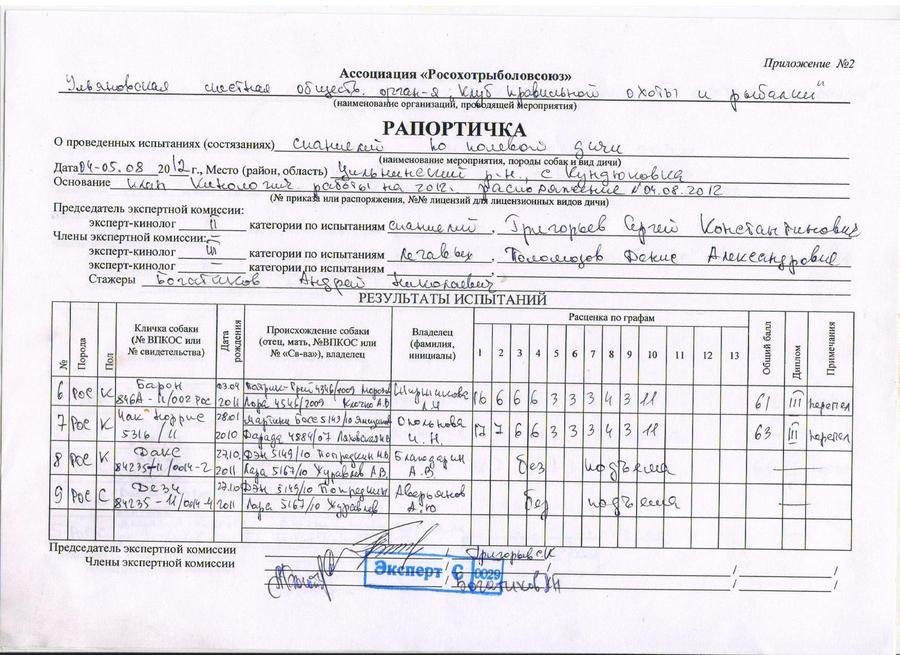 Приложение №2
Ассоциация «Росохотрыболовсоюз»
Ульяновская местная обществ. орган-я "Клуб правильной охоты и рыбалки"
(наименование организаций, проводящей мероприятия)
РАПОРТИЧКА
О проведенных испытаниях (состязаниях) спаниелей по полевой дичи
(наименование мероприятия, породы собак и вид дичи)
Дата 04-05.08 2012 г., Место (район, область) Цильнинский р-н., с Кундюковка
Основание план кинологич. работы на 2012. распоряжение 04.08.2012
(№ приказа или распоряжения, №№ лицензий для лицензионных видов дичи)
Председатель экспертной комиссии:
эксперт-кинолог II категории по испытаниям спаниелей, Григорьев Сергей Константинович
Члены экспертной комиссии:
эксперт-кинолог III категории по испытаниям легавых, Денис Александрович
эксперт-кинолог — категории по испытаниям
Стажеры Богатиков Андрей Николаевич
РЕЗУЛЬТАТЫ ИСПЫТАНИЙ
№ Порода Пол Кличка собаки (№ ВПКОС или № свидетельства) Дата рождения Происхождение собаки (отец, мать, №ВПКОС или № «Св-ва»), владелец Владелец (фамилия, инициалы) Расценка по графам Общий балл Диплом Примечания
1 2 3 4 5 6 7 8 9 10 11 12 13
6 РОС К Барон 03.04 Ширшикова 16 6 6 6 3 3 3 4 3 11 61 III перепел
846А-11/002 рос 2011 Лора 4546/2009
7 РОС К Чак Норрис 28.01 Мартини Босс 5143/10 12 7 6 6 3 3 3 4 3 11 63 III перепел
5316/11 2010 4884/07 И.Н.
8 РОС К Факс 27.10 Фэн 5149/10 Попредкин Благодарин без подъема —
84235-11/0014-2 2011 Лара 5167/10 Журавлев А.В. А.В.
9 РОС С Дези 27.10 Фэн 5149/10 Попредкин Аверьянов без подъема —
84235-11/0014-4 2011 Лара 5167/10 Журавлев А.Ю
Председатель экспертной комиссии / Григорьев С.К
Члены экспертной комиссии / /
Эксперт С 0029
Богатиков АН